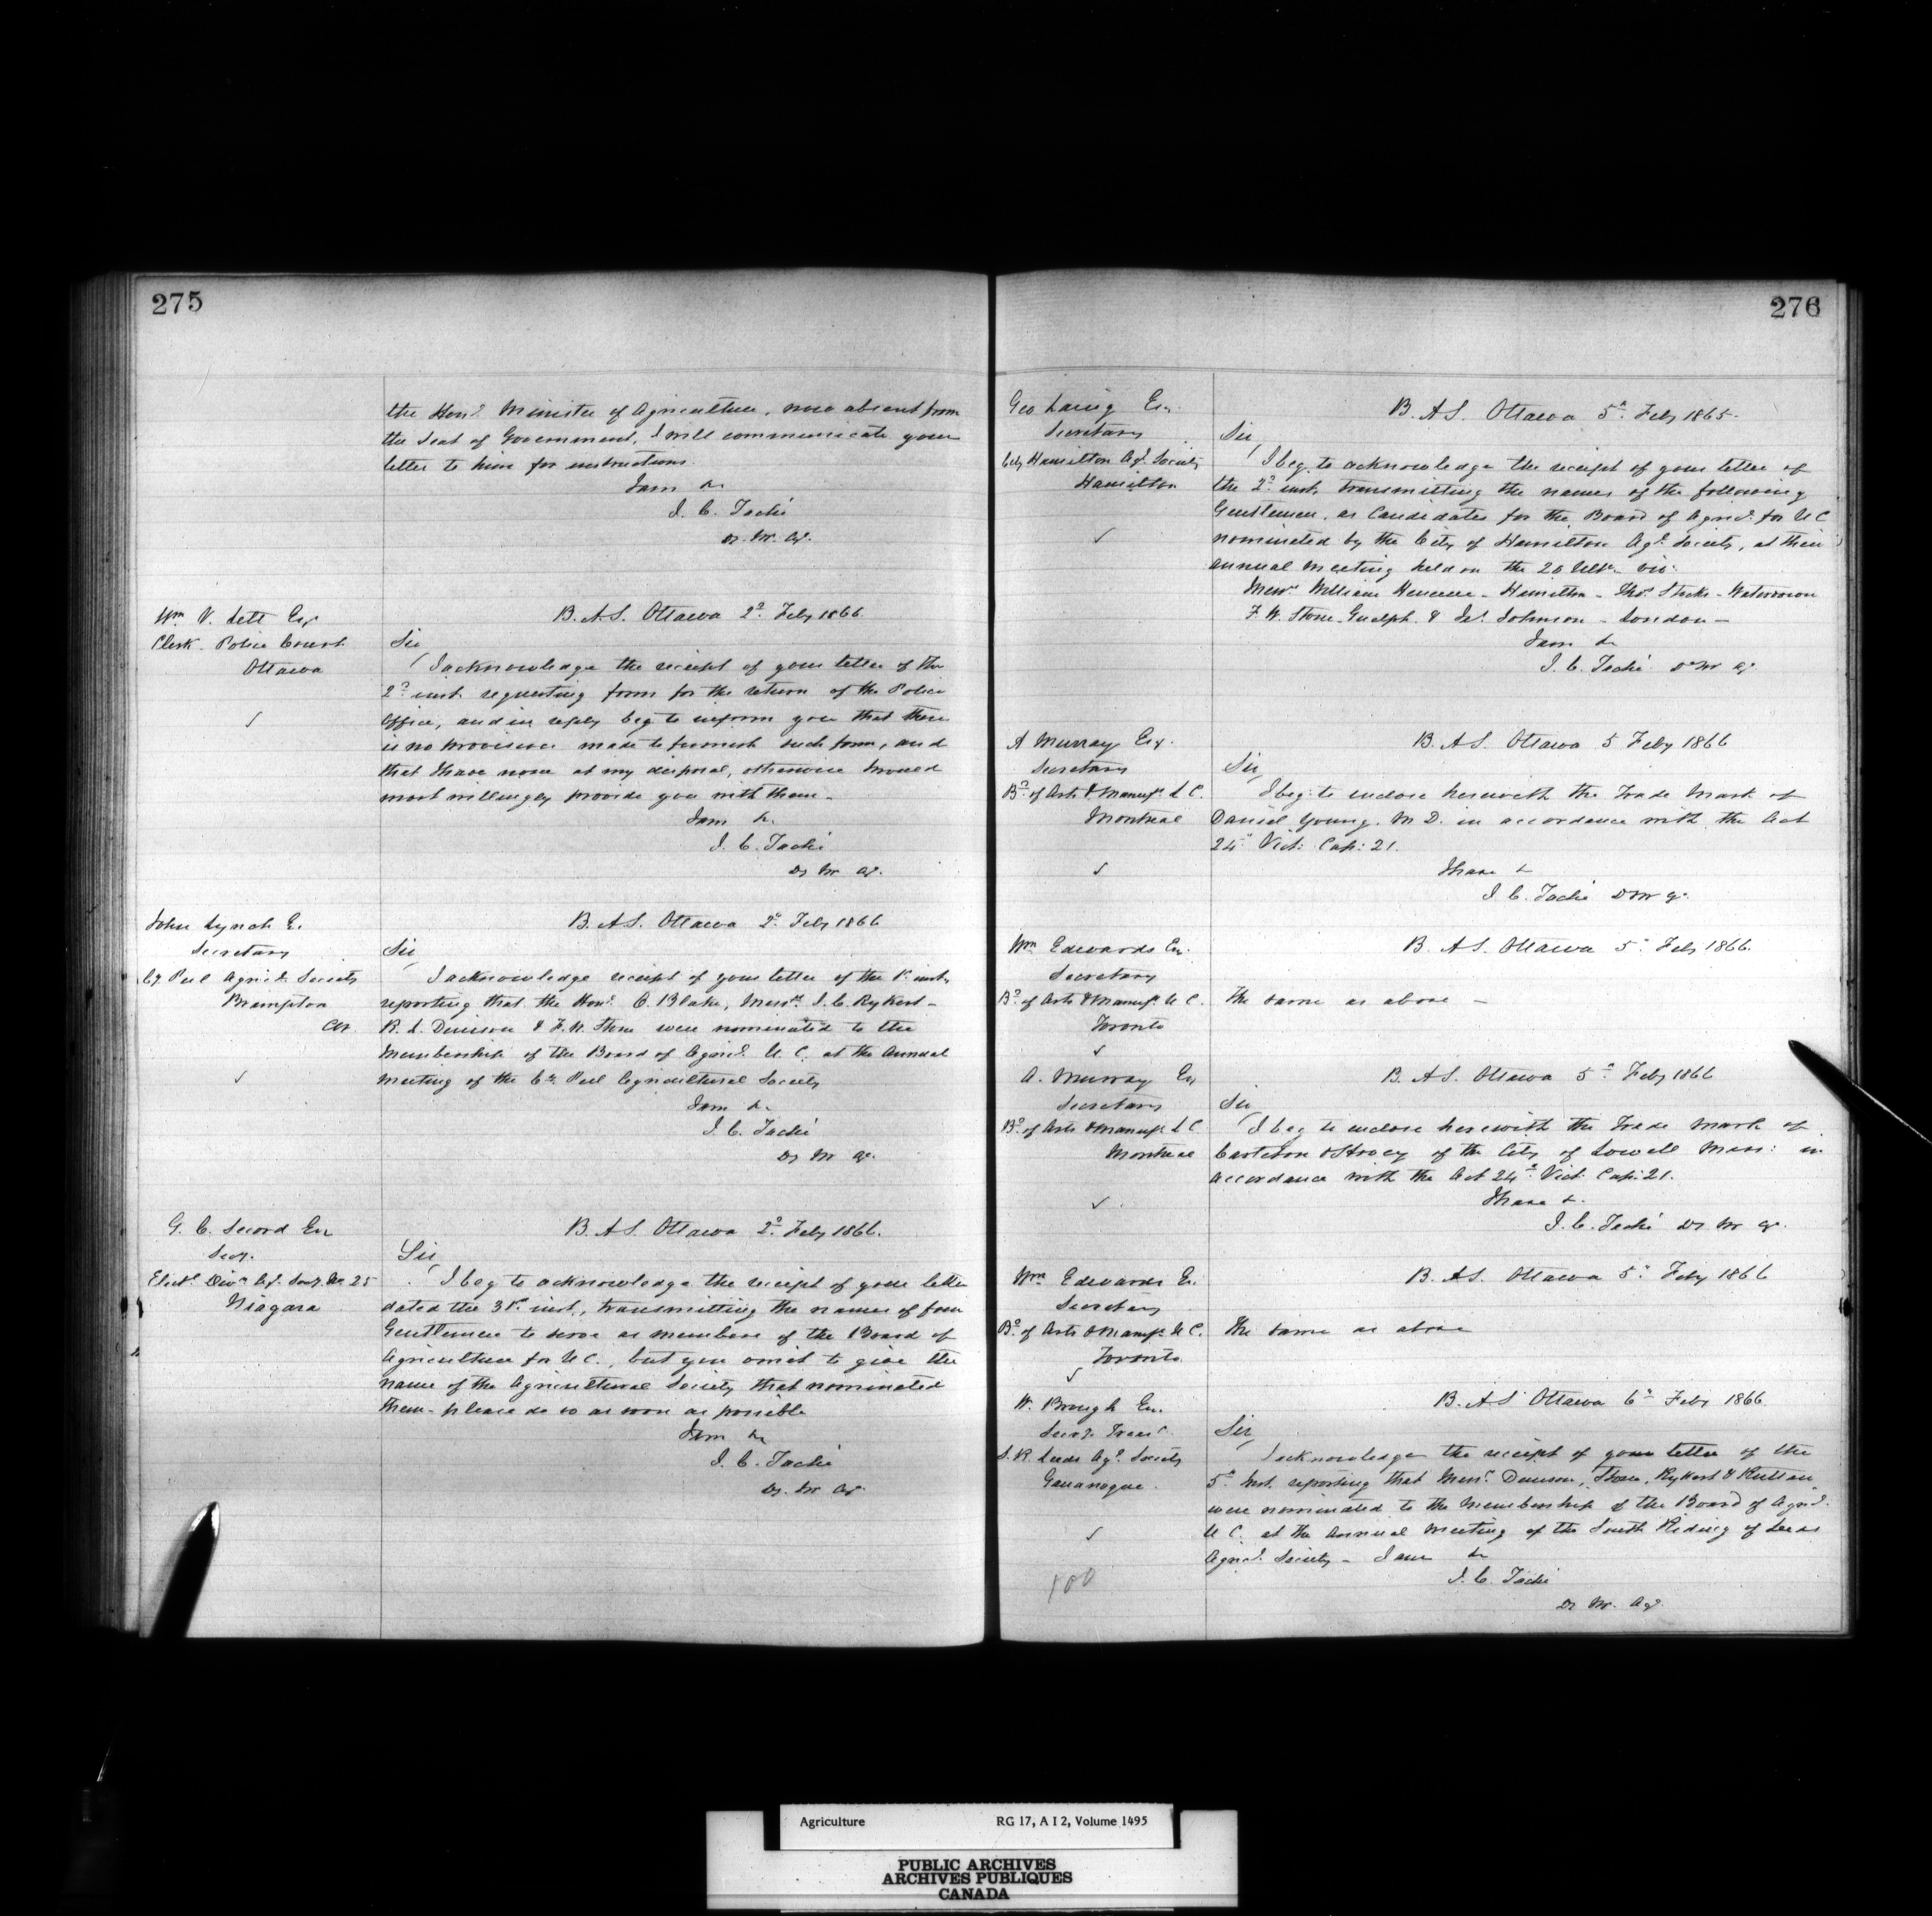 275
the Honl. Minister of Agriculture, now absent from
the Seat of Government, I will communicate your
letter to him for instructions.
I am &c
J. C. Taché
Dy. Mr. Ag.
Wm. V. Lett Esq
Clerk Police Court
Ottawa
B. A S. Ottawa 2d Feby 1866
Sir
I acknowledge the receipt of your letter of the
2d inst. requesting form for the return of the Police
Office, and in reply beg to inform you that there
is no provision made to furnish such form, and
that I have none at my disposal, otherwise I would
most willingly provide you with them.
I am &c.
J. C. Taché
Dy Mr Ag.
John Lynch E.
Secretary
Cy. Peel Agricl. Society
Brampton
CW.
B. A S. Ottawa 2d Feby 1866
Sir
I acknowledge receipt of your letter of the 1st inst,
reporting that the Honl. O. Blake, Messrs. J. C. Rykert -
R. L. Denison & F. W. Stone were nominated to the
Membership of the Board of Agricl. U. C. at the Annual
Meeting of the Co. Peel Agricultural Society
I am &c
J. C. Taché
Dy Mr Ag.
G. C. Secord Esq
Secy.
Electl. Divn. Ag. Socy. No. 25
Niagara
B. A S. Ottawa 2d Feby 1866.
Sir
I beg to acknowledge the receipt of your letter
dated the 31st inst., transmitting the names of four
Gentlemen to serve as members of the Board of
Agriculture for U C., but you omit to give the
name of the Agricultural Society that nominated
them - please do so as soon as possible
I am &c
J. C. Taché
Dy. Mr Ag.
276
Geo Laing Esq.
Secretary
City Hamilton Agl. Society
Hamilton
B. A S. Ottawa 5th Feby 1865.
Sir
I beg to acknowledge the receipt of your letter of
the 2d inst, transmitting the names of the following
Gentlemen, as Candidates for the Board of Agricl. for U C
nominated by the City of Hamilton Agl. Society, at their
annual meeting held on the 20 Ulto. viz:
Messrs William Hamilton - Thos Stocks - Waterdown
F. W. Stone Guelph & Js. Johnson - London -
I am &c
J. C. Taché Dy Mr Ag.
A Murray Esq.
Secretary
Bd. of Arts & Manufs. L C.
Montreal
B. A S. Ottawa 5 Feby 1866
Sir,
I beg to enclose herewith the Trade Mark of
Daniel Young. M D. in accordance with the Act
24th Vict: Cap: 21.
I have &
J. C. Taché D Mr Ag.
Wm Edwards Esq.
Secretary
Bd. of Arts & Manufs. U C.
Toronto
B. A S. Ottawa 5th Feby 1866.
The same as above -
A. Murray Esq
Secretary
Bd. of Arts & Manufs. L C
Montreal
B. A S. Ottawa 5th Feby 1866
Sir
I beg to enclose herewith the Trade Mark of
& Hovey of the City of Lowell Mass: in
accordance with the Act 24th Vict: Cap: 21.
I have &.
J. C. Taché Dy Mr Ag.
Wm Edwards E.
Secretary
Bd. of Arts & Manufs. U C.
Toronto
B. A S. Ottawa 5th Feby 1866
The same as above
W. Brough Esq.
Secy. Treasr.
S. R. Leeds Agl. Society
Gananoque.
B. A S Ottawa 6th Feby 1866.
Sir,
I acknowledge the receipt of your letter of the
5th Inst. reporting that Messrs. Denison, Stone, Rykert & Ruttan
were nominated to the Membership of the Board of Agricl.
U C. at the Annual Meeting of the South Riding of Leeds
Agricl. Society - I am &c
J. C. Taché
Dy Mr. Ag.
100
Agriculture RG 17, A I 2, Volume 1495
PUBLIC ARCHIVES
ARCHIVES PUBLIQUES
CANADA